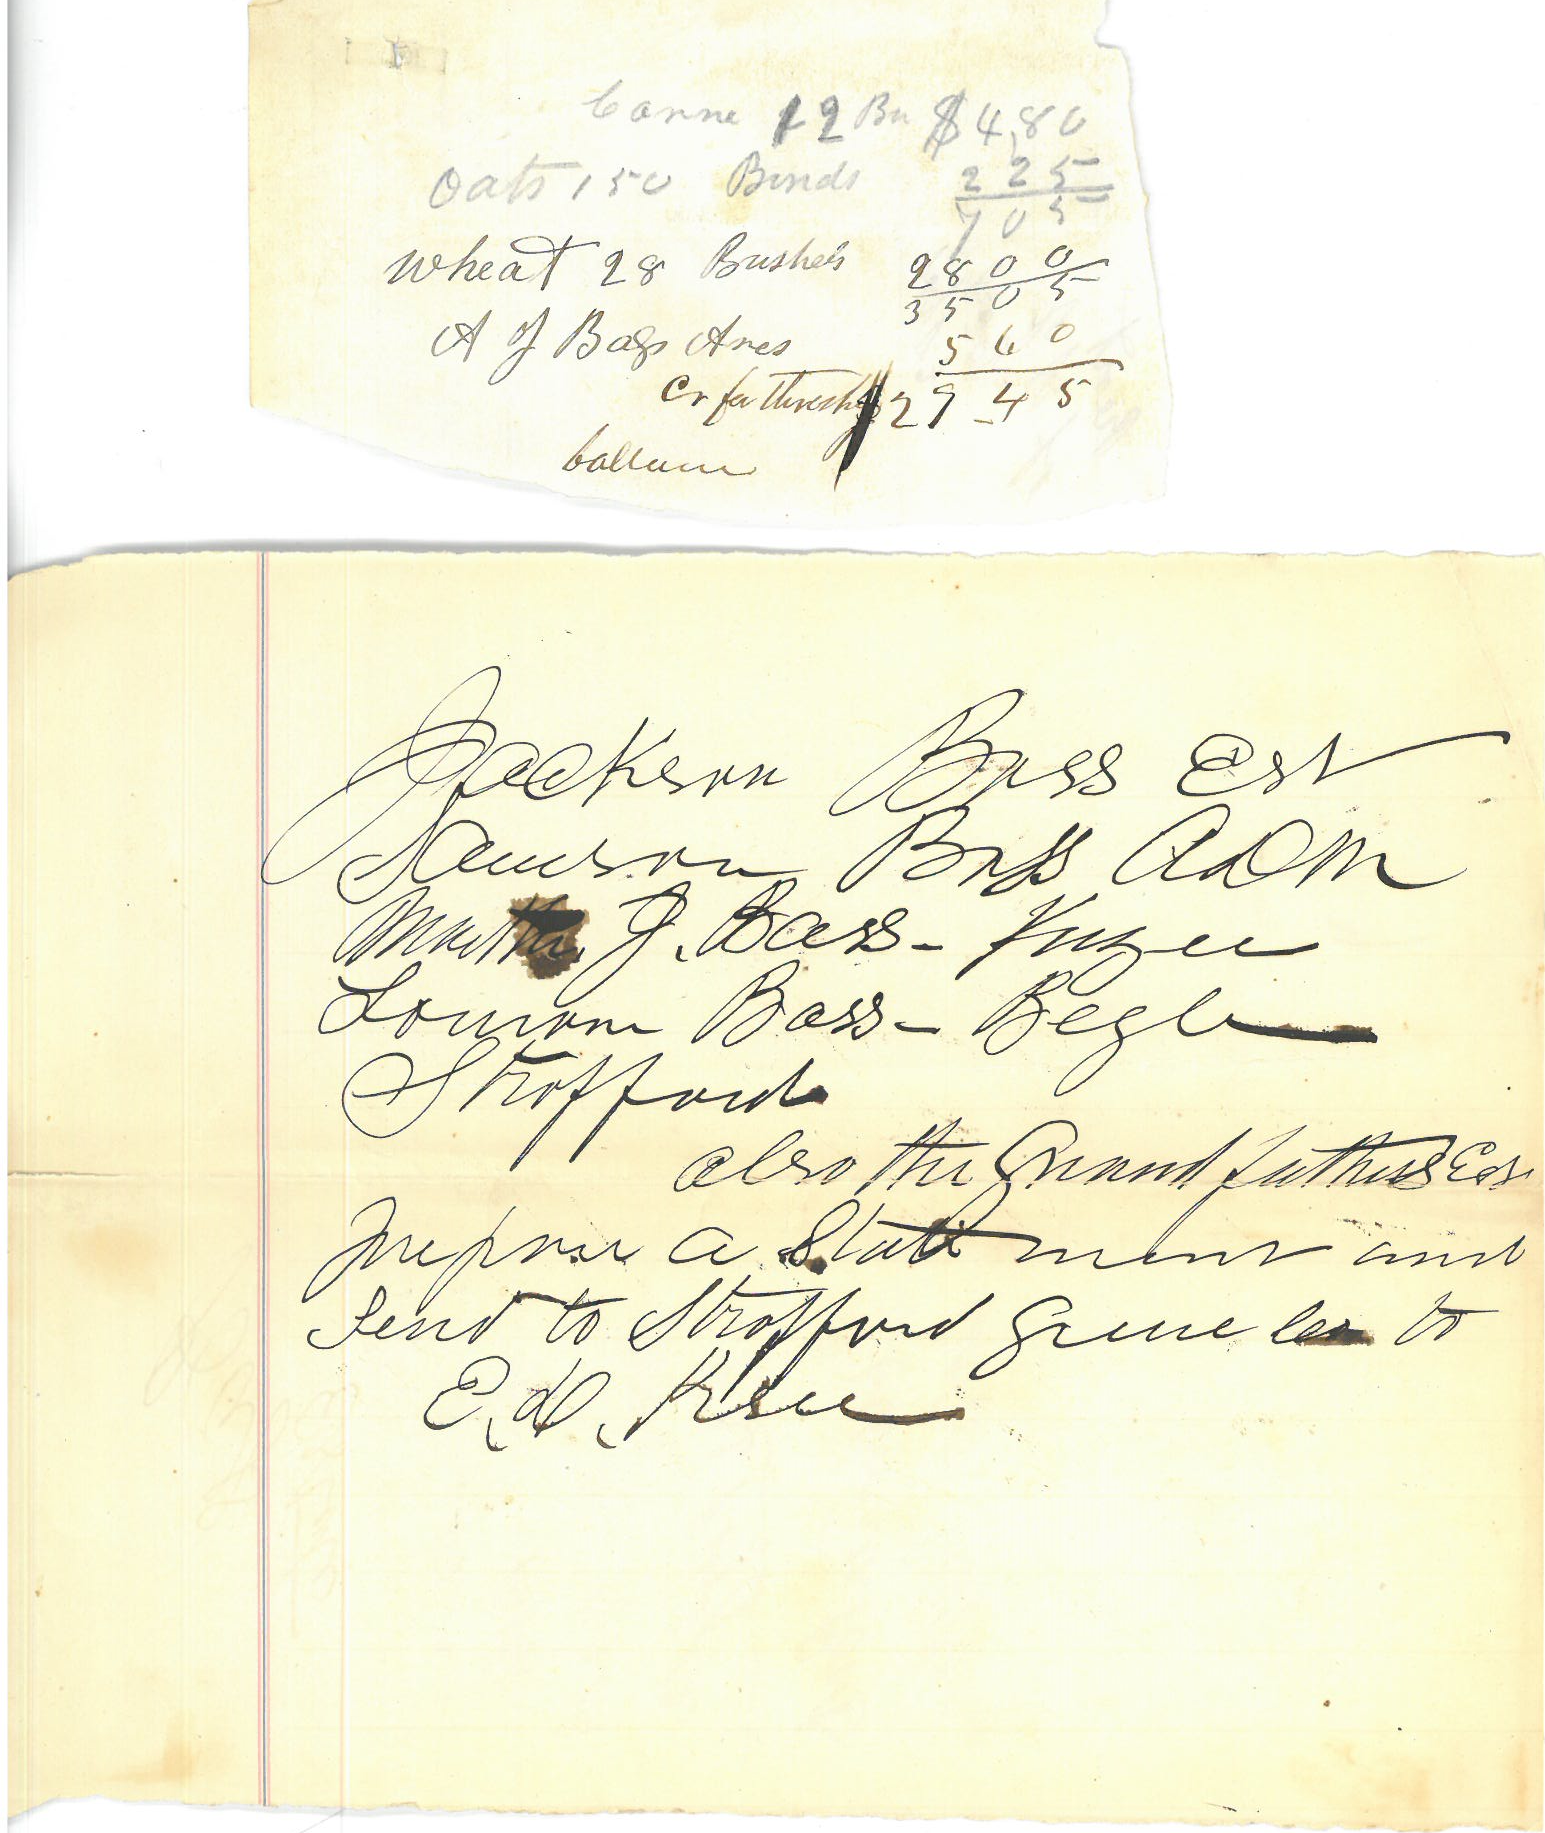 Corne 12 Bu $4,80
Oats 150 Binds 2 25
7 05
Wheat 28 Bushels 28 00
35 05
A J Bags Ares 5 60
Cr for thresh $29-45
ballance
Jackson Bass Est
Samson Bass ADM
Martha J. Bass-
Bass-
Strafford
also the Grand fathers Est
prepare a Statement and
Send to Strafford to
E.